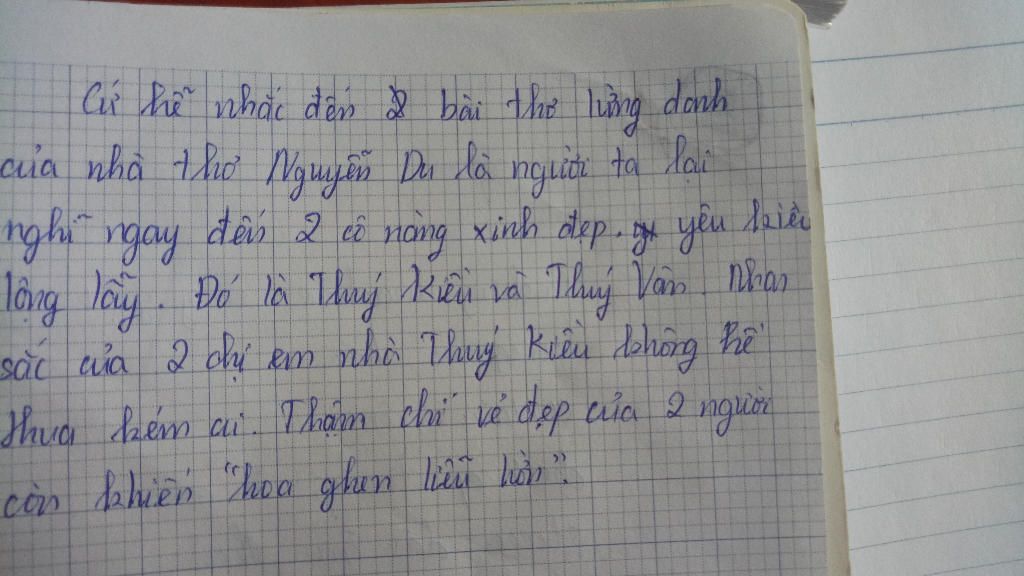 Cứ hễ nhắc đến 2 bài thơ lừng danh
của nhà thơ Nguyễn Du là người ta lại
nghĩ ngay đến 2 cô nàng xinh đẹp. yêu kiều
lộng lẫy. Đó là Thuý Kiều và Thuý Vân. Nhan
sắc của 2 chị em nhà Thuý Kiều không hề
thua kém ai. Thậm chí vẻ đẹp của 2 người
còn khiến "hoa ghen liễu hờn".